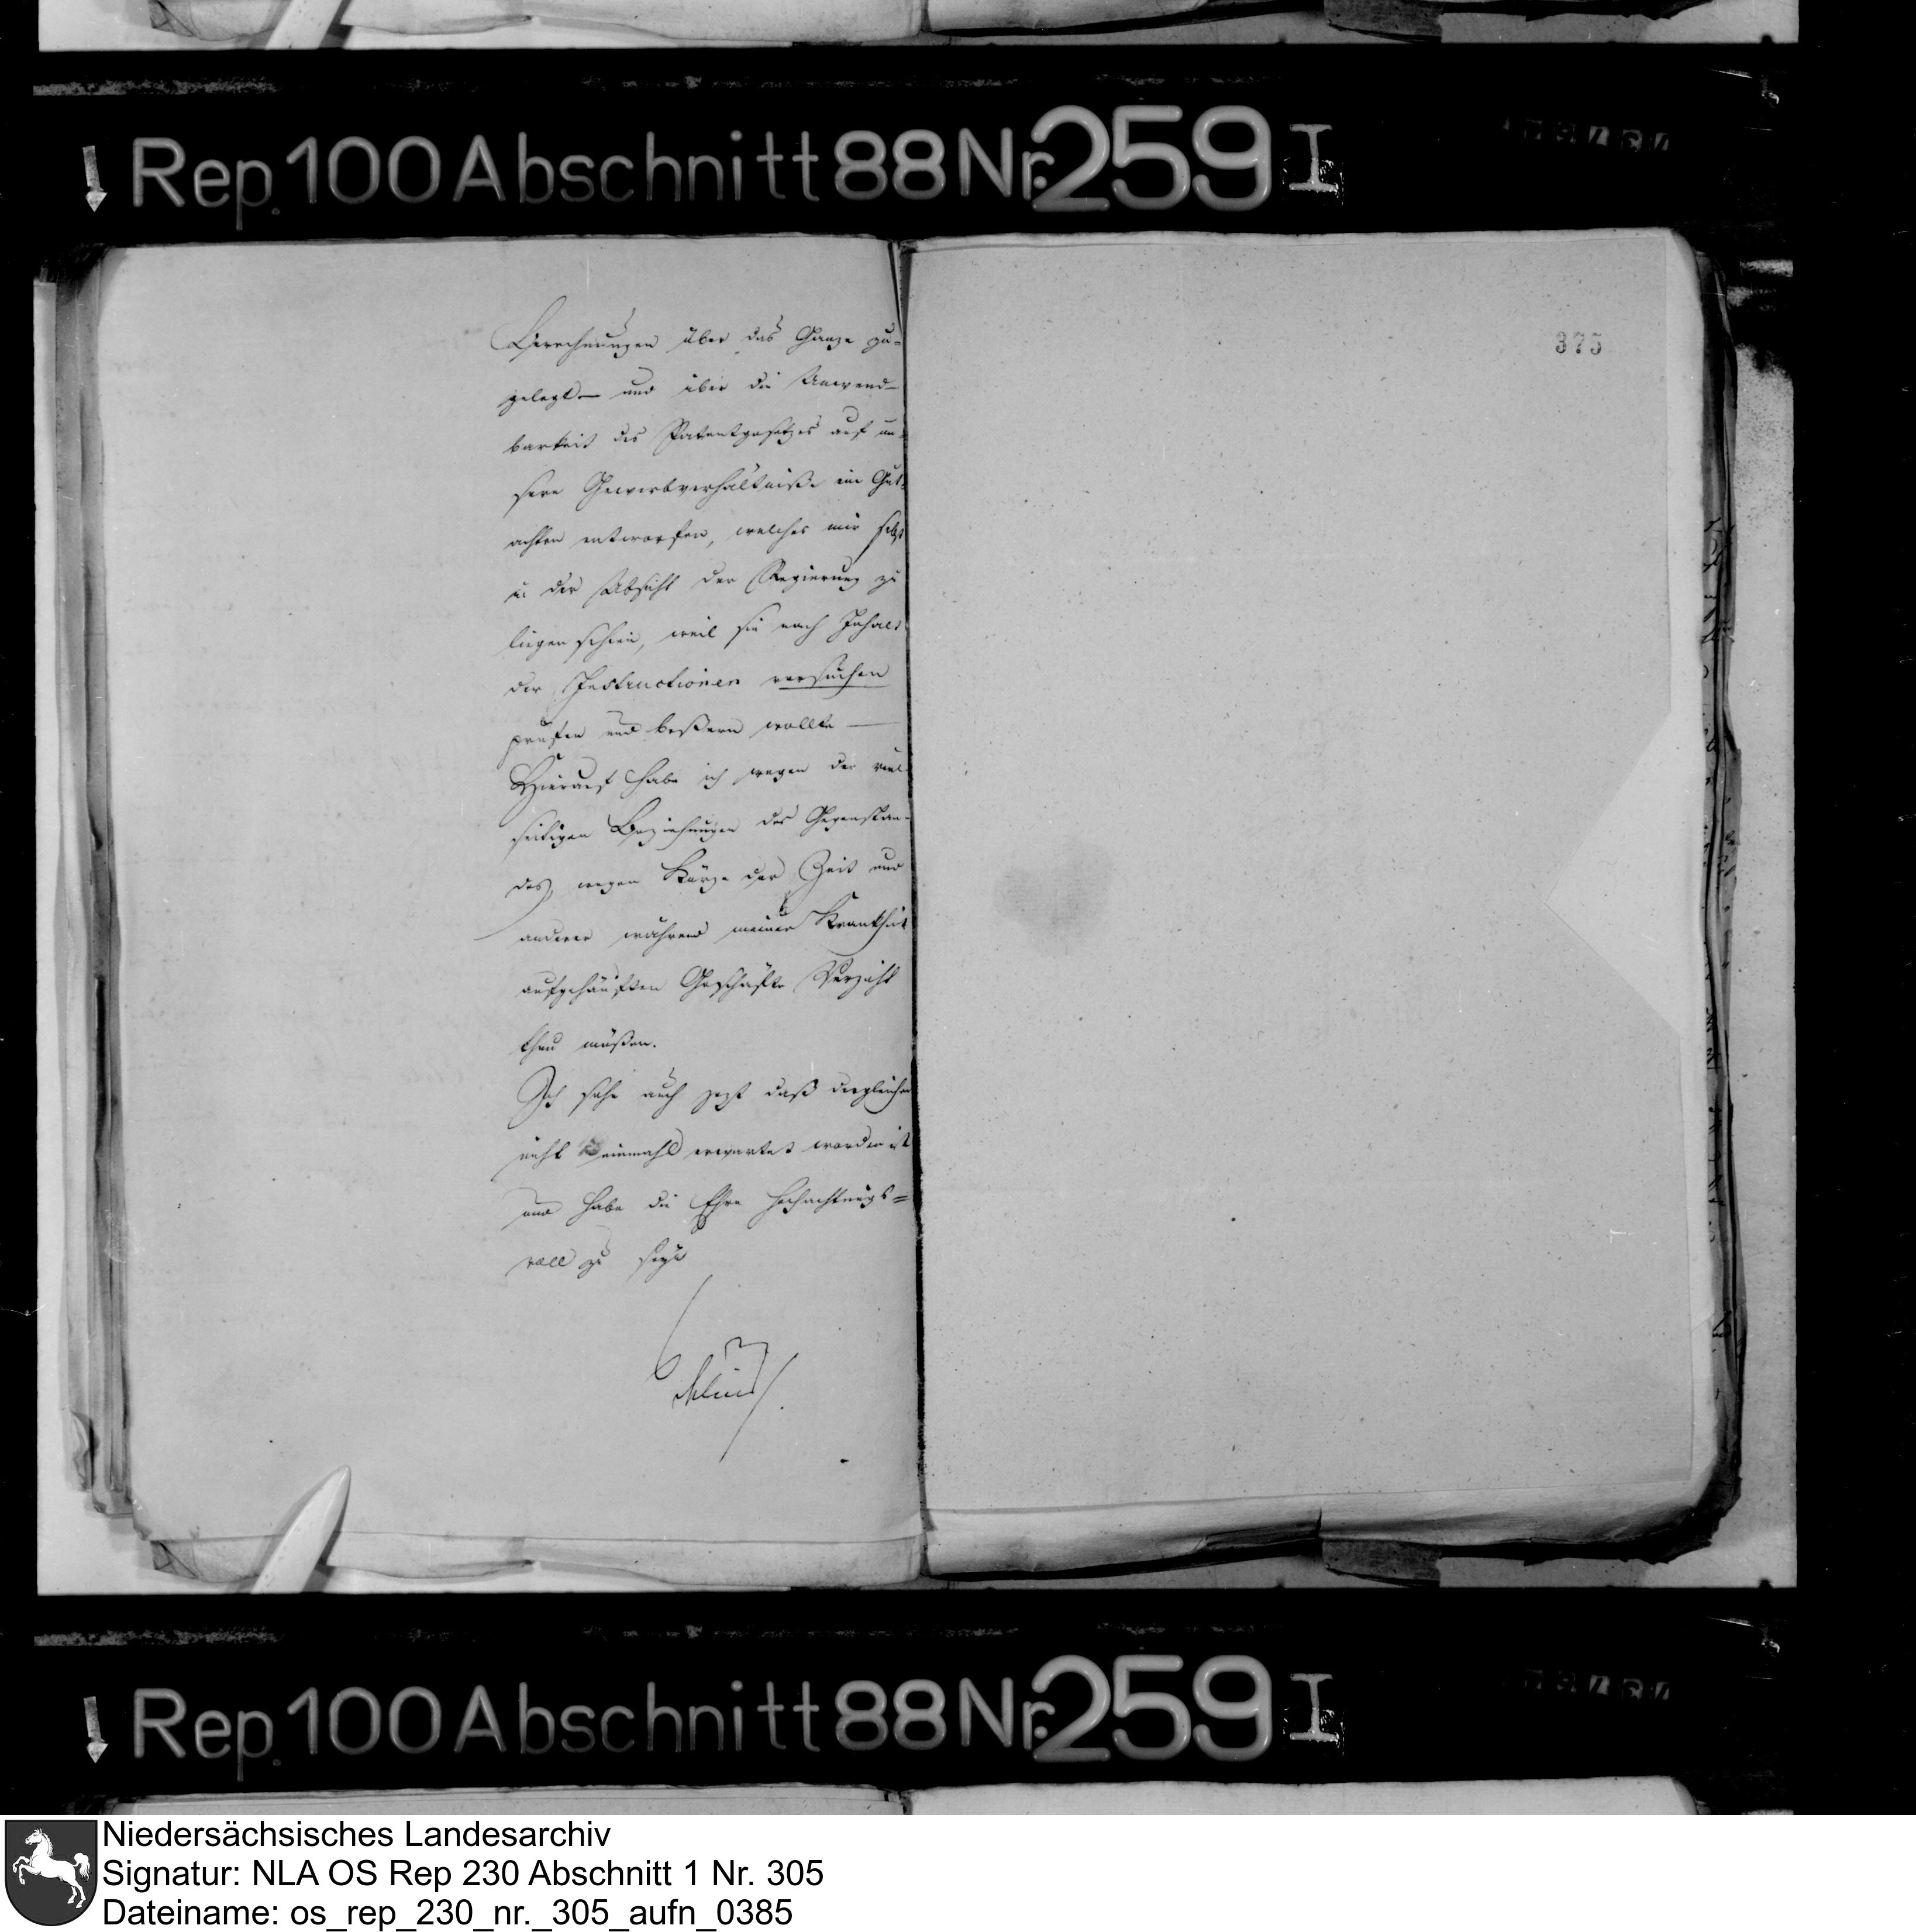 Rep. 100 Abschnitt 88 Nr. 259 I
375
Berechnungen über das Ganze zu-
gelegt — und über die Anwend-
barkeit des Patentgesetzes auf un-
sere Gewerbverhältniße ein Gut-
achten entworfen, welches mir selbst
in der Absicht der Regierung zu
liegen schien, weil sie nach Inhalt
der Instructionen versuchen
prüfen und beßern wollte —
Hierauf habe ich wegen der viel-
seitigen Beziehungen des Gegenstan-
des, wegen Kürze der Zeit und
anderer während meiner Krankheit
aufgehäuften Geschäfte Verzicht
thun müßen.
Ich sehe auch jezt daß dergleichen
nicht einmahl erwartet worden ist
und habe die Ehre hochachtungs=
voll zu seyn
Rep. 100 Abschnitt 88 Nr. 259 I
Niedersächsisches Landesarchiv
Signatur: NLA OS Rep 230 Abschnitt 1 Nr. 305
Dateiname: os_rep_230_nr._305_aufn_0385